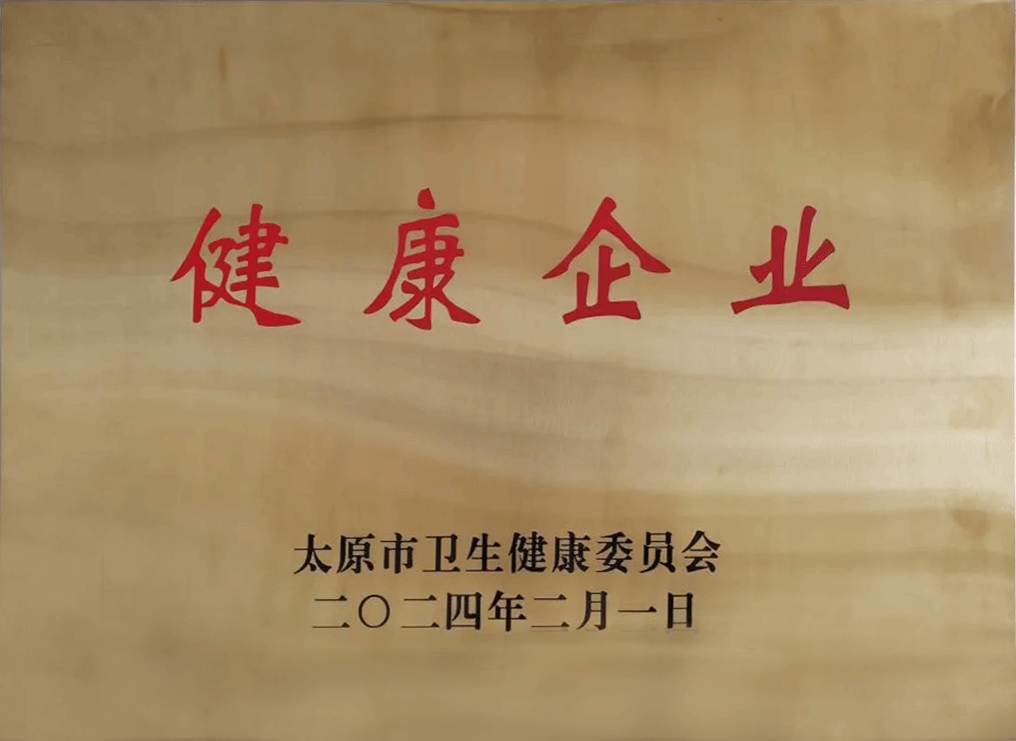 健康企业
太原市卫生健康委员会
二〇二四年二月一日